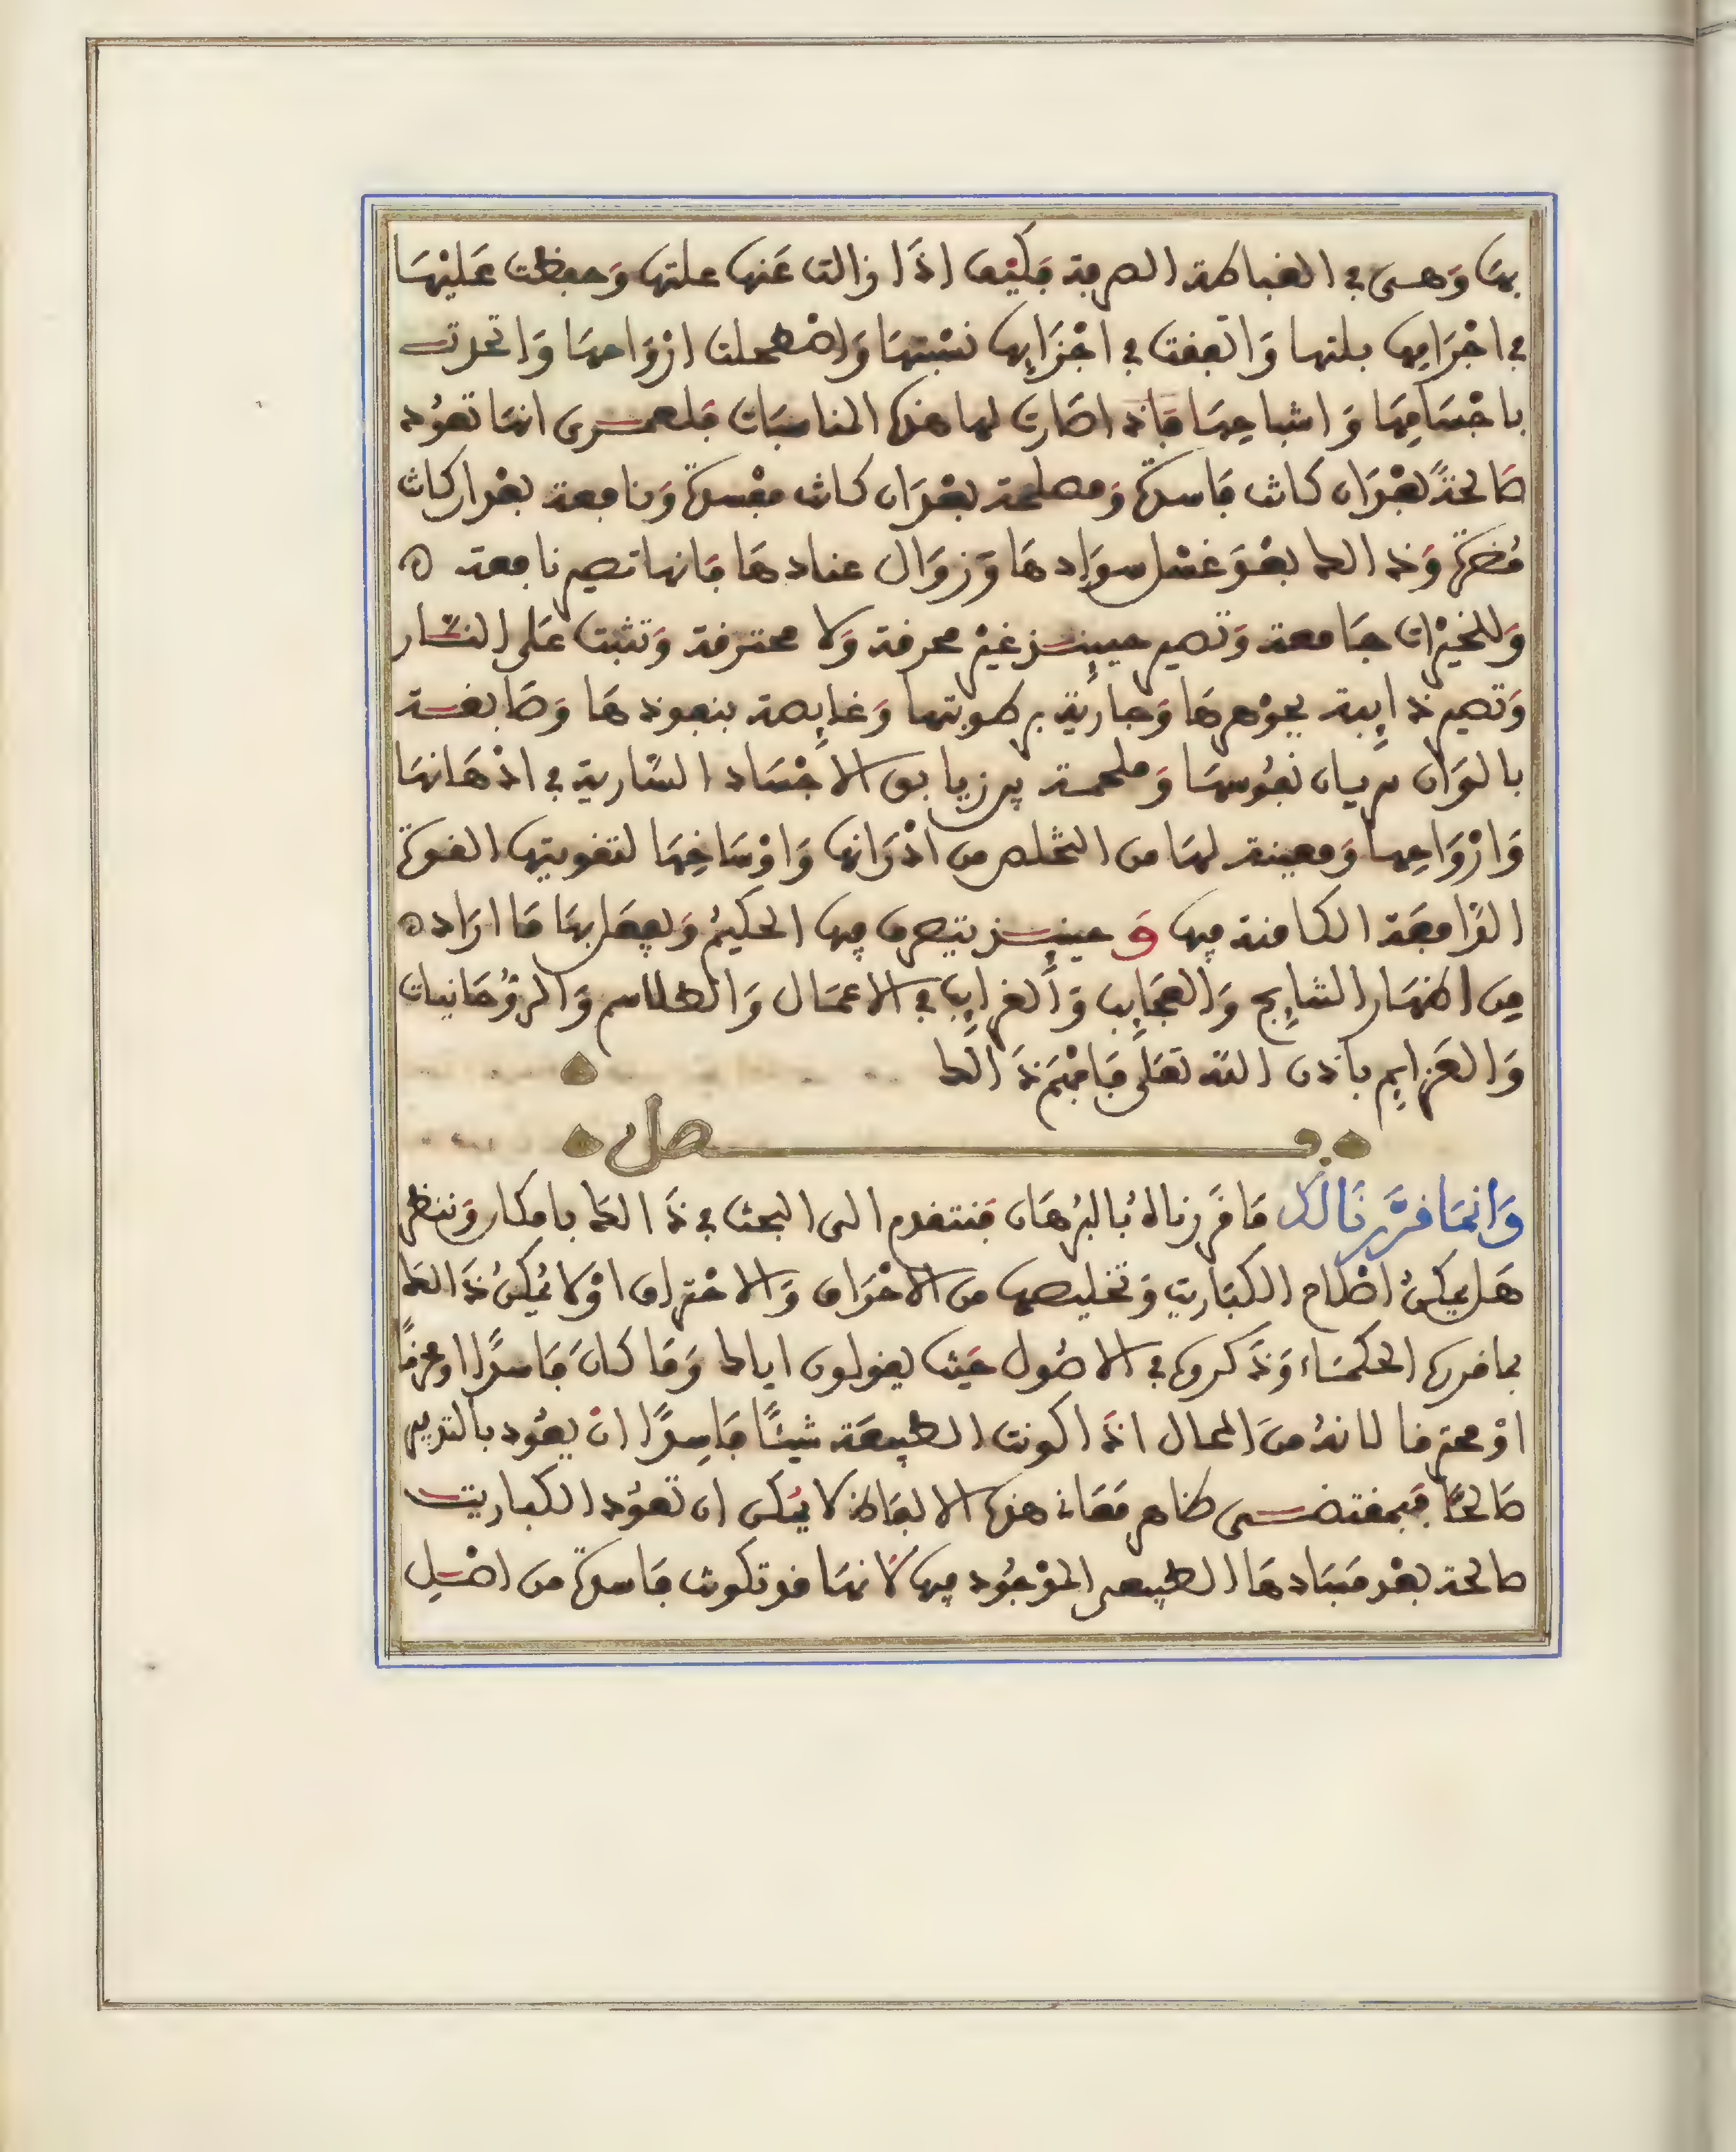 بها وهى في الغباطة الصرفة فكيف اذا زالت عنها علتها وحفظت عليها
في اجرامها بلتها واتفقت في اجزايها نسبتها واضمحلت ارواحها واتحدت
باجسامها واشباحها فاذا صارت لها هذه المناسبات فلعمرى انها تعود
صالحةً بعد ان كانت فاسدة ومصلحة بعد ان كانت مفسدة ونافعة بعد ان كانت
مضرة وذالك بعد غسل سوادها وزوال عنادها فانها تصير نافعة
وللخيرات جامعة وتصير حينيذ غير محرقة ولا محترقة وتثبت على النار
وتصير ذايبة بجوهرها وجارية برطوبتها وغايصة بنفوذها وصابغة
بالوان سريان نفوسها وملحمة بين زيابق الاجساد السارية في اذهانها
وارواحها ومعينة لها من التخلص من ادرانها واوساخها لتقويتها القوة
الدافعة الكامنة فيها وحينيذ يتصرف فيها الحكيم ويفعل بها ما اراده
من اظهار النتايج والعجايب والغرايب في الاعمال والطلاسم والروحانيات
والعزايم باذن الله تعلى فافهم ذالك
فصل
وانما قررنا لك ما قررناه بالبرهان فنتقدم الى البحث في ذالك بامكار وننظر
هل يمكن اصلاح الكباريت وتخليصها من الاحراق والاحتراق او لا يمكن ذالك
بما قرره الحكماء وذكروه في الاصول حيث يقولون اياك وما كان فاسدًا او محرقًا
او محترقا لانه من المحال اذا كونت الطبيعة شيئًا فاسدًا ان يعود بالتدبير
صالحًا فبمقتضى ظاهر معاني هذه الالفاظ لا يمكن ان تعود الكباريت
صالحة بعد فسادها الطبيعي الموجود فيها لانها قد تكونت فاسدة من اصل